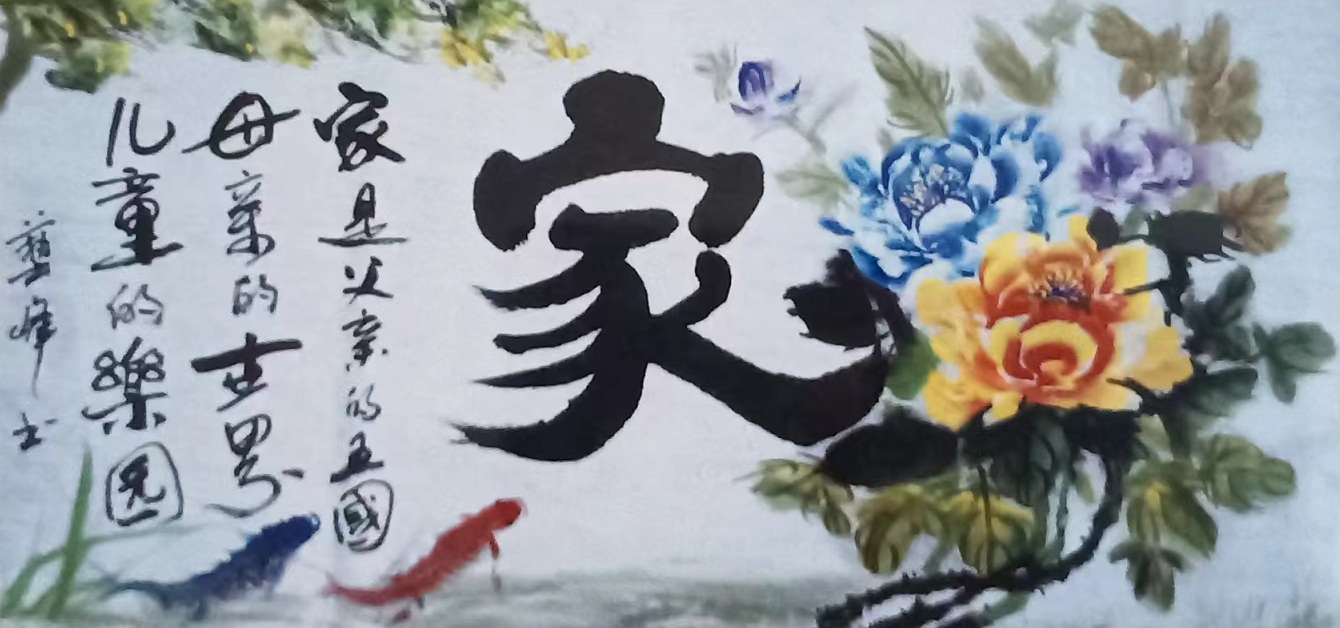 家
家是父亲的王國
母亲的世界
儿童的樂园
峰书